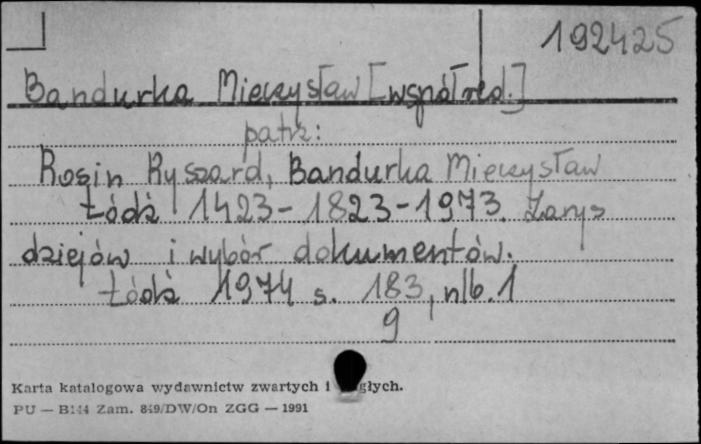 192425
Bandurka Mieczysław [współred.]
patrz:
Rosin Ryszard, Bandurka Mieczysław
Łódź 1423-1823-1973. Zarys
dziejów i wybór dokumentów.
Łódź 1974 s. 183, nlb. 1
9
Karta katalogowa wydawnictw zwartych i głych.
PU — B144 Zam. 849/DW/On ZGG — 1991